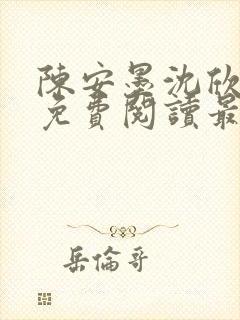 陳安墨沈欣
免費閱讀最
岳倫哥